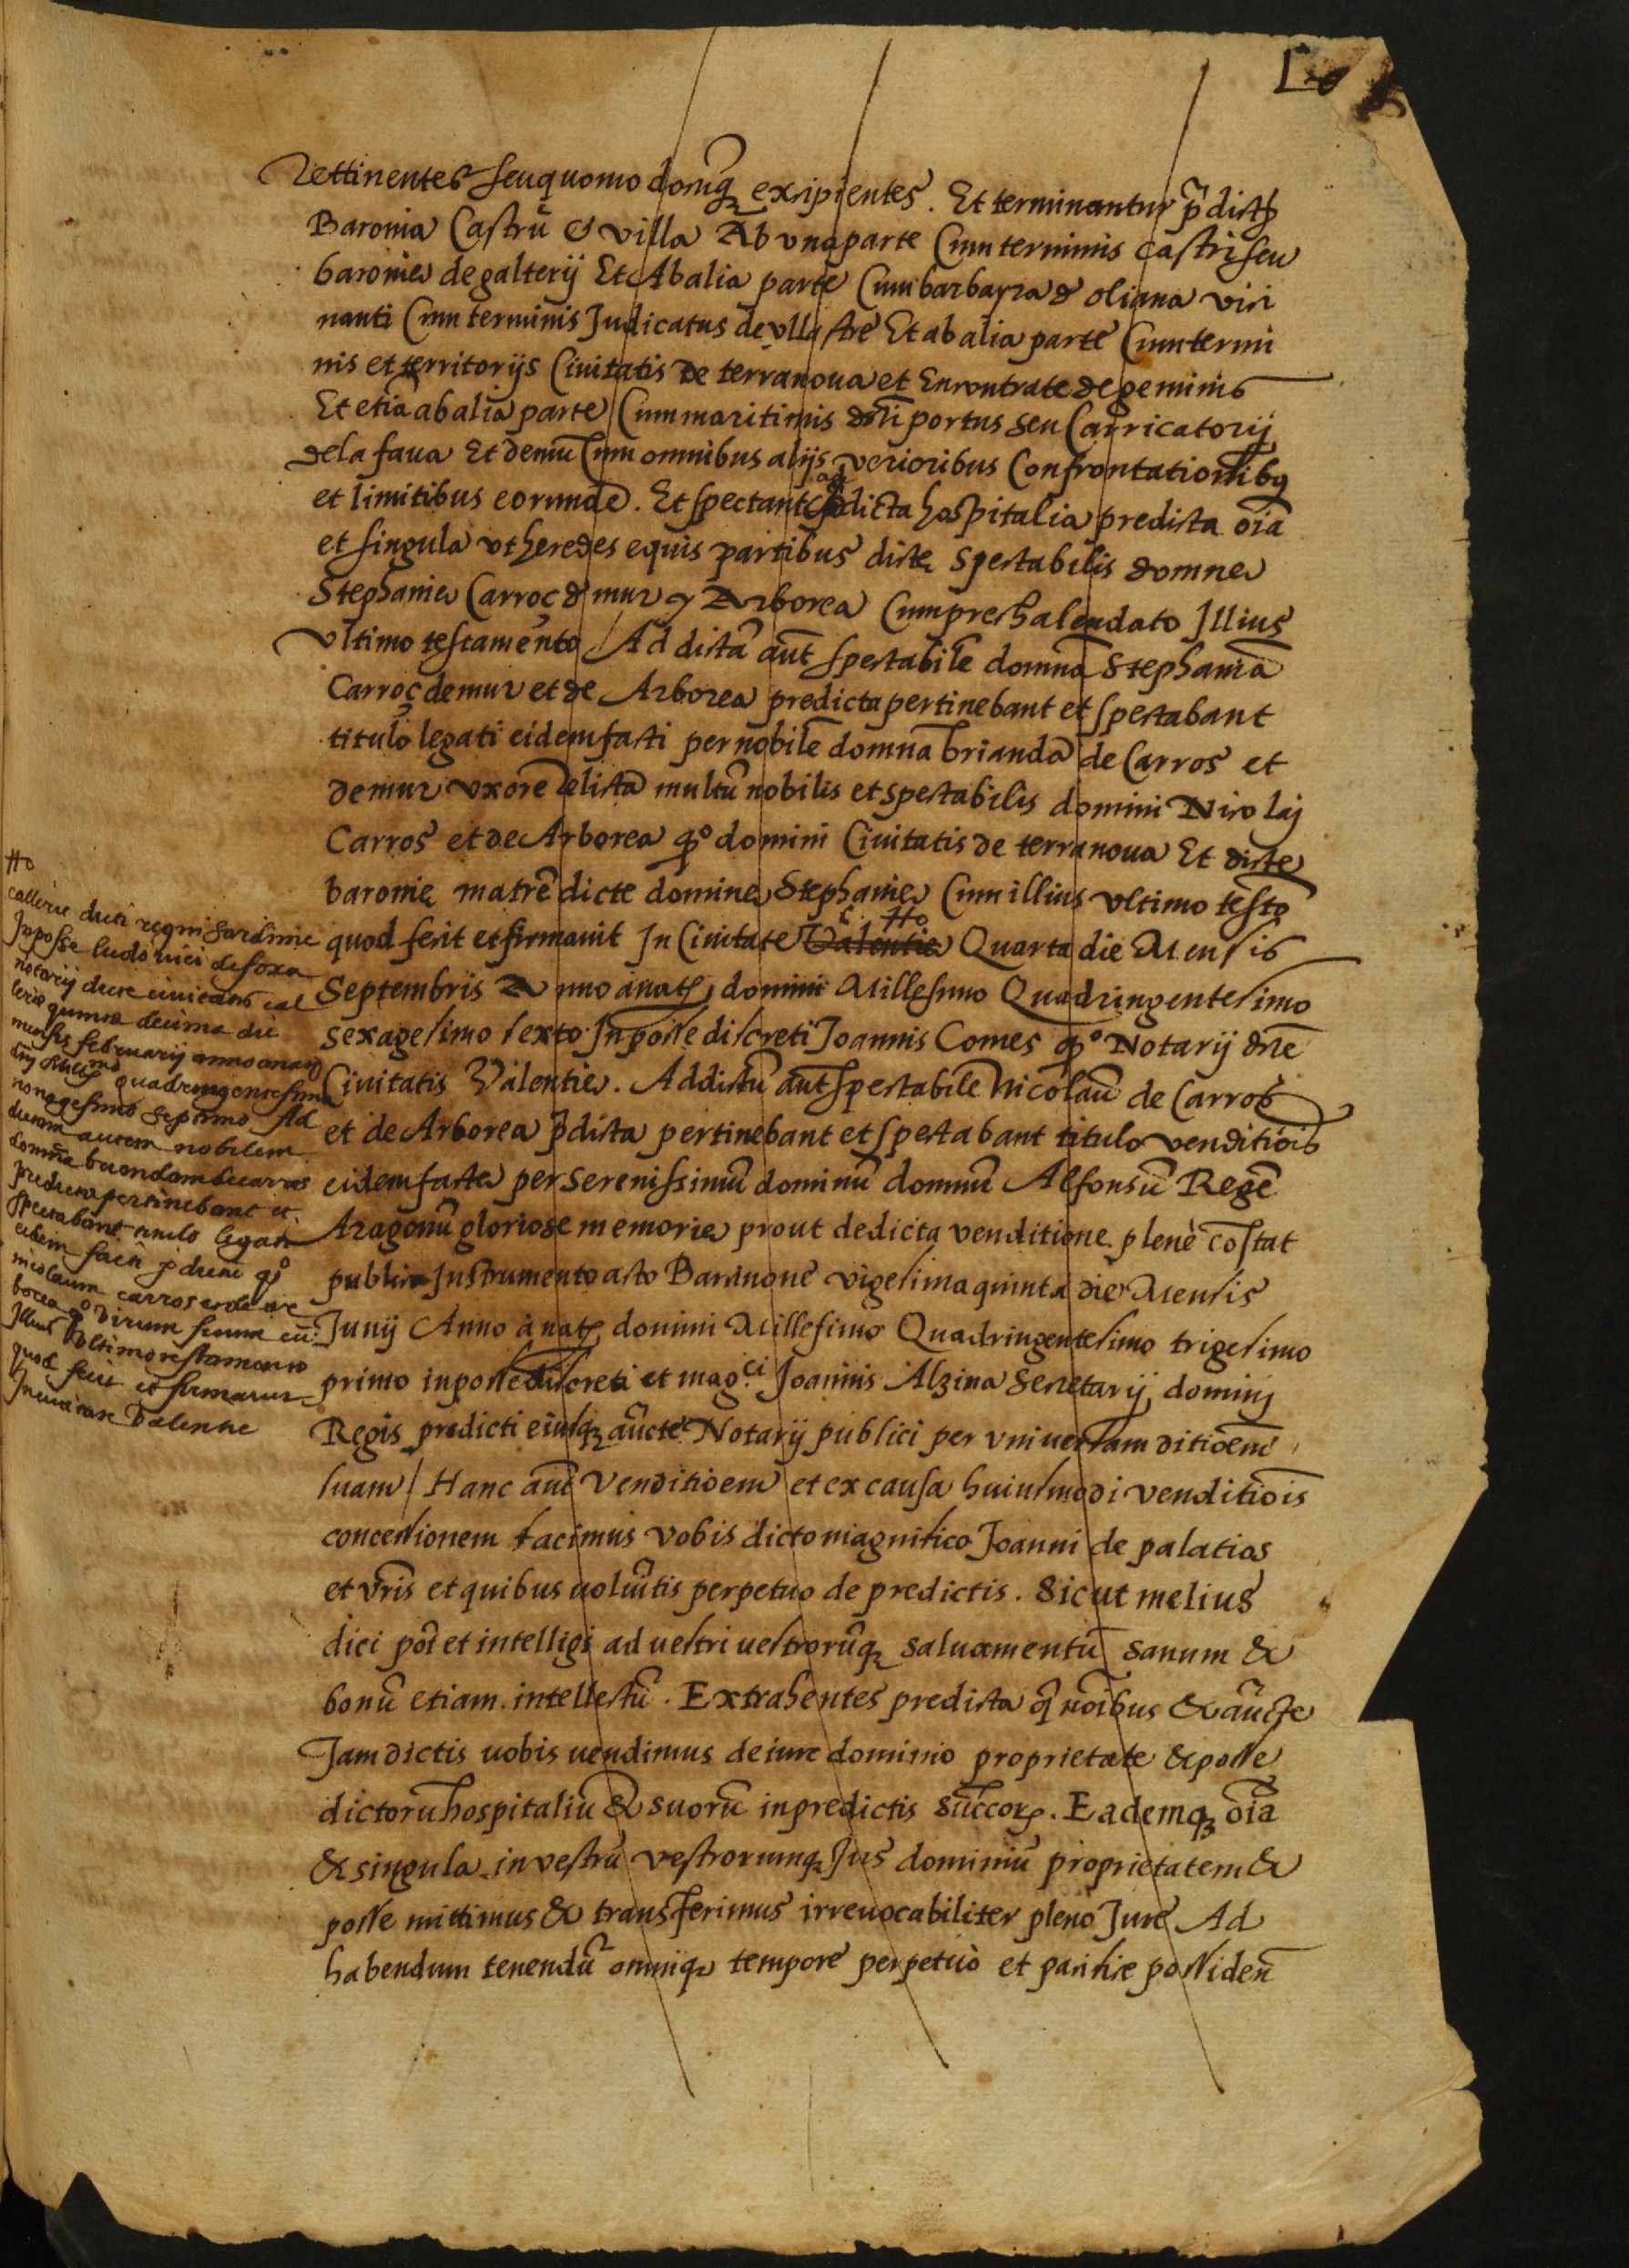 Rettinentes seu quomodocūq; excipientes. Et terminantur p̄dictę
Baronia Castrū & villa Ab vna parte Cum terminis castri seu
baronie de galterij Et Ab alia parte Cum barbarza & oliana vici
nanti Cum terminis Judicatus de vllastre Et ab alia parte Cum termi
nis et territorijs Ciuitatis de terranoua et Encontrate de geminis
Et etiā ab alia parte Cum maritimis dc̄i portus seu Carricatorij
de la faua Et demū Cum omnibus alijs verioribus Confrontationibꝫ
et limitibus eorundē. Et spectant ad dicta hospitalia predicta oīa
et singula vt heredes equis partibus dictę Spectabilis domne
Stephanie Carroç & mur y Arborea Cum prechalendato Illius
vltimo testamento / Ad dictā aut̄ spectabilē domnā Stephaniā
Carroç de mur et de Arborea predicta pertinebant et spectabant
titulo legati eidem facti per nobilē domnā briandā de Carros et
de mur vxorē relictā multū nobilis et spectabilis domini Nicolaj
Carros et de Arborea q° domini Ciuitatis de terranoua Et dicte
baronie matrē dicte domine Stephanie Cum illius vltimo testo
quod fecit et firmauit In Ciuitate Valentie Quarta die Mensis
Septembris Anno a natę domini Millesimo Quadringentesimo
sexagesimo sexto In posse discreti Joannis Comes q° Notarij dc̄e
Ciuitatis Valentie. Ad dictū aut̄ spectabilē Nicolaū de Carros
et de Arborea p̄dicta pertinebant et spectabant titulo venditiōis
eidem facte per serenissimū dominū domnū Alfonsū Regē
Aragonū gloriose memorie prout de dicta venditione plenè cōstat
publico Instrumento acto Barcinone vigesima quinta die Mensis
Junij Anno à natę domini Millesimo Quadringentesimo trigesimo
primo in posse discreti et mag.ci Joannis Alzina Secretarij dominj
Regis predicti eiusq; aūcte Notarij publici per vniuersam ditiōem
suam / Hanc aut̄ Venditiōem et ex causa huiusmodi venditiōis
concessionem facimus vobis dicto magnifico Joanni de palatios
et vr̄is et quibus uolūtis perpetuo de predictis. Sicut melius
dici pōt et intelligi ad uestri uestrorūq; saluamentū sanum &
bonū etiam intellectū. Extrahentes predicta q̄ noībus & aūcte
Jam dictis uobis uendimus de iure dominio proprietate & posse
dictorū hospitaliū & suorū in predictis succor. Eademq; oīa
& singula in vestrū vestrorumq; Jus dominiū proprietatem &
posse mittimus & transferimus irreuocabiliter pleno Jure Ad
habendum tenendū omniq; tempore perpetuò et pacifice possidēn
callerie dicti regni Sardinie
In posse ludouici de
notarij dicte ciuitatis cal
lerie quinta decima die
mensis februarij anno a natę
dn̄j Millmo quadringentesimo
nonagesimo septimo Ad
dictam autem nobilem
domnā briandam de carros
predicta pertinebant et
spectabant titulo legati
eidem facti p dictū q°
nicolaum carros et de ar
borea q° virum suum cū
Illius vltimo testamento
quod fecit et firmauit
In ciuitate Valentie